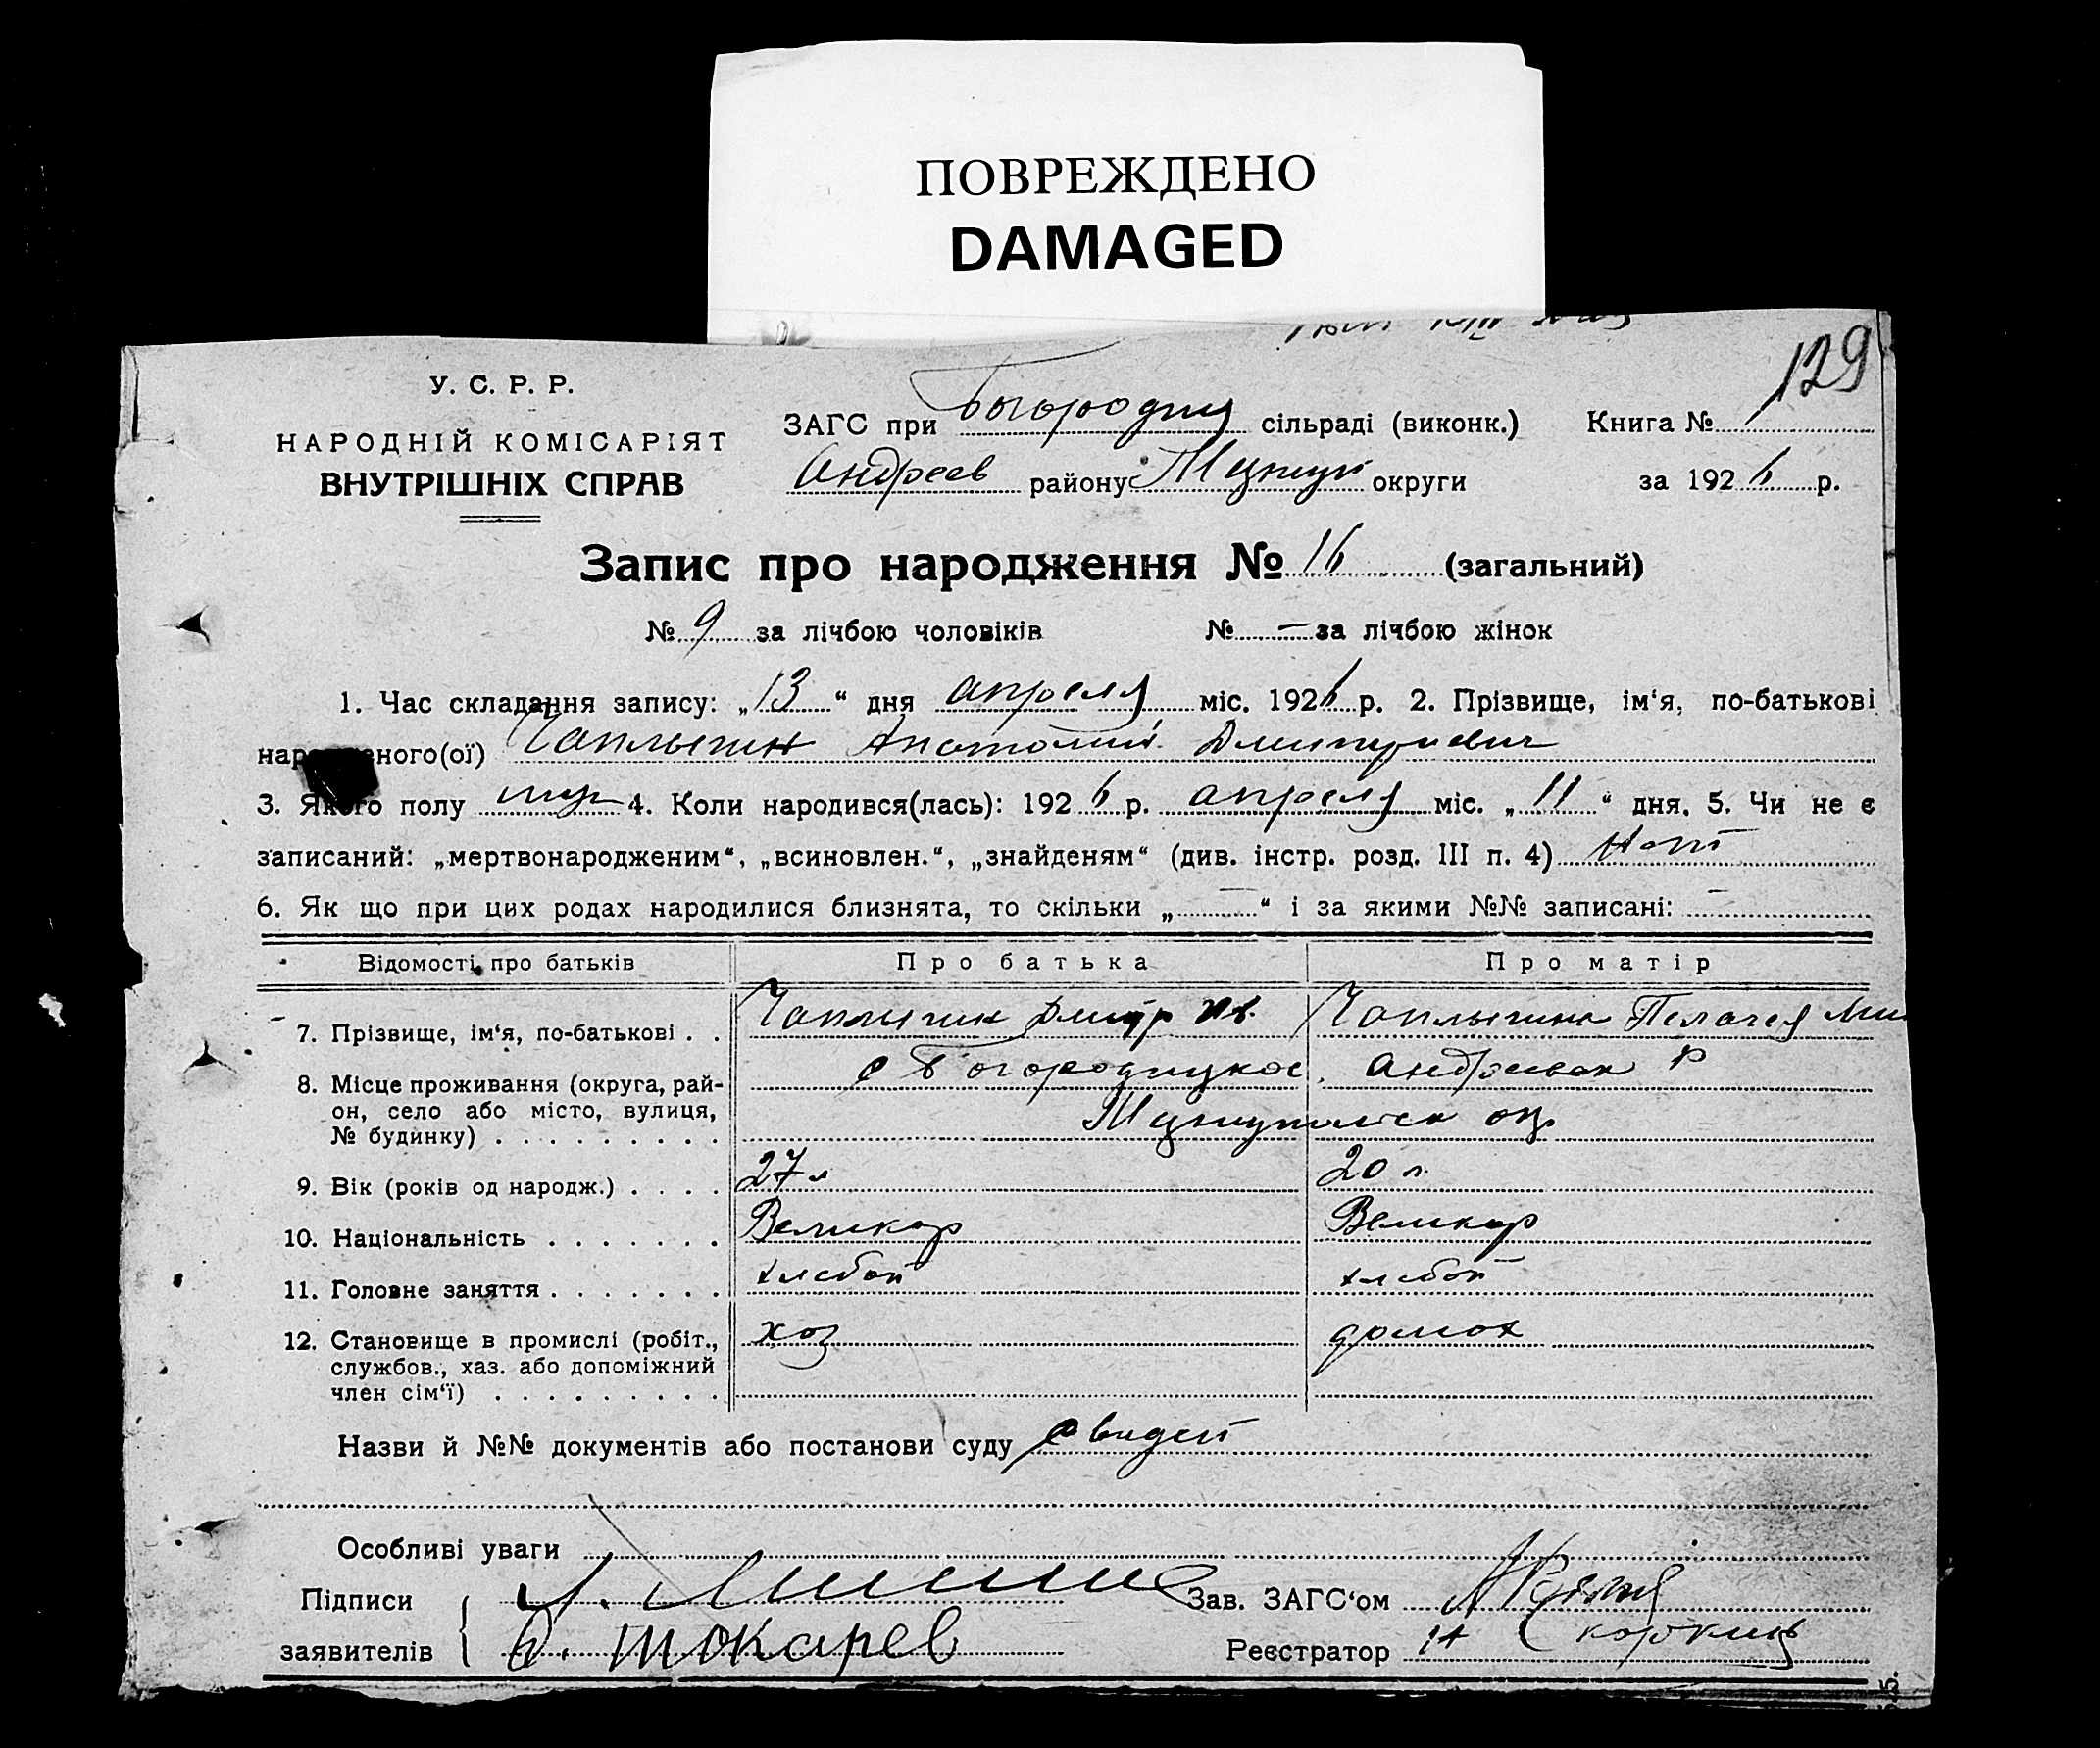 ПОВРЕЖДЕНО
DAMAGED
129
У. С. Р. Р.
НАРОДНІЙ КОМІСАРІЯТ
ВНУТРІШНІХ СПРАВ
ЗАГС при Богородиц сільраді (виконк.) Книга №
Андреев району округи за 1926 р.
Запис про народження № 16 (загальний)
№ 9 за лічбою чоловіків № — за лічбою жінок
1. Час складання запису: „13“ дня апреля міс. 1926 р. 2. Прізвище, ім‘я, по-батькові
народженого(ої) Чаплыгин Анатолий Дмитриевич
3. Якого полу муж 4. Коли народився(лась): 1926 р. апреля міс. „11“ дня. 5. Чи не є
записаний: „мертвонародженим“, „всиновлен.“, „знайденям“ (див. інстр. розд. III п. 4) Нет
6. Як що при цих родах народилися близнята, то скільки „—“ і за якими №№ записані: —
Відомості про батьків Про батька Про матір
7. Прізвище, ім‘я, по-батькові . . Чаплыгин Дмитр Ив. Чаплыгина Пелагея Ми
8. Місце проживання (округа, рай- с Богородицкое, Андреевск р
он, село або місто, вулиця,
№ будинку) . . . . . . . . . ок.
9. Вік (років од народж.) . . . . 27 л 20 л.
10. Національність . . . . . . . Великор Великор
11. Головне заняття . . . . . . . хлебоп хлебоп
12. Становище в промислі (робіт., хоз домох
службов., хаз. або допоміжний
член сім‘ї) . . . . . . . . .
Назви й №№ документів або постанови суду свидет
Особливі уваги
Підписи Зав. ЗАГС‘ом
заявителів Токарев Реєстратор